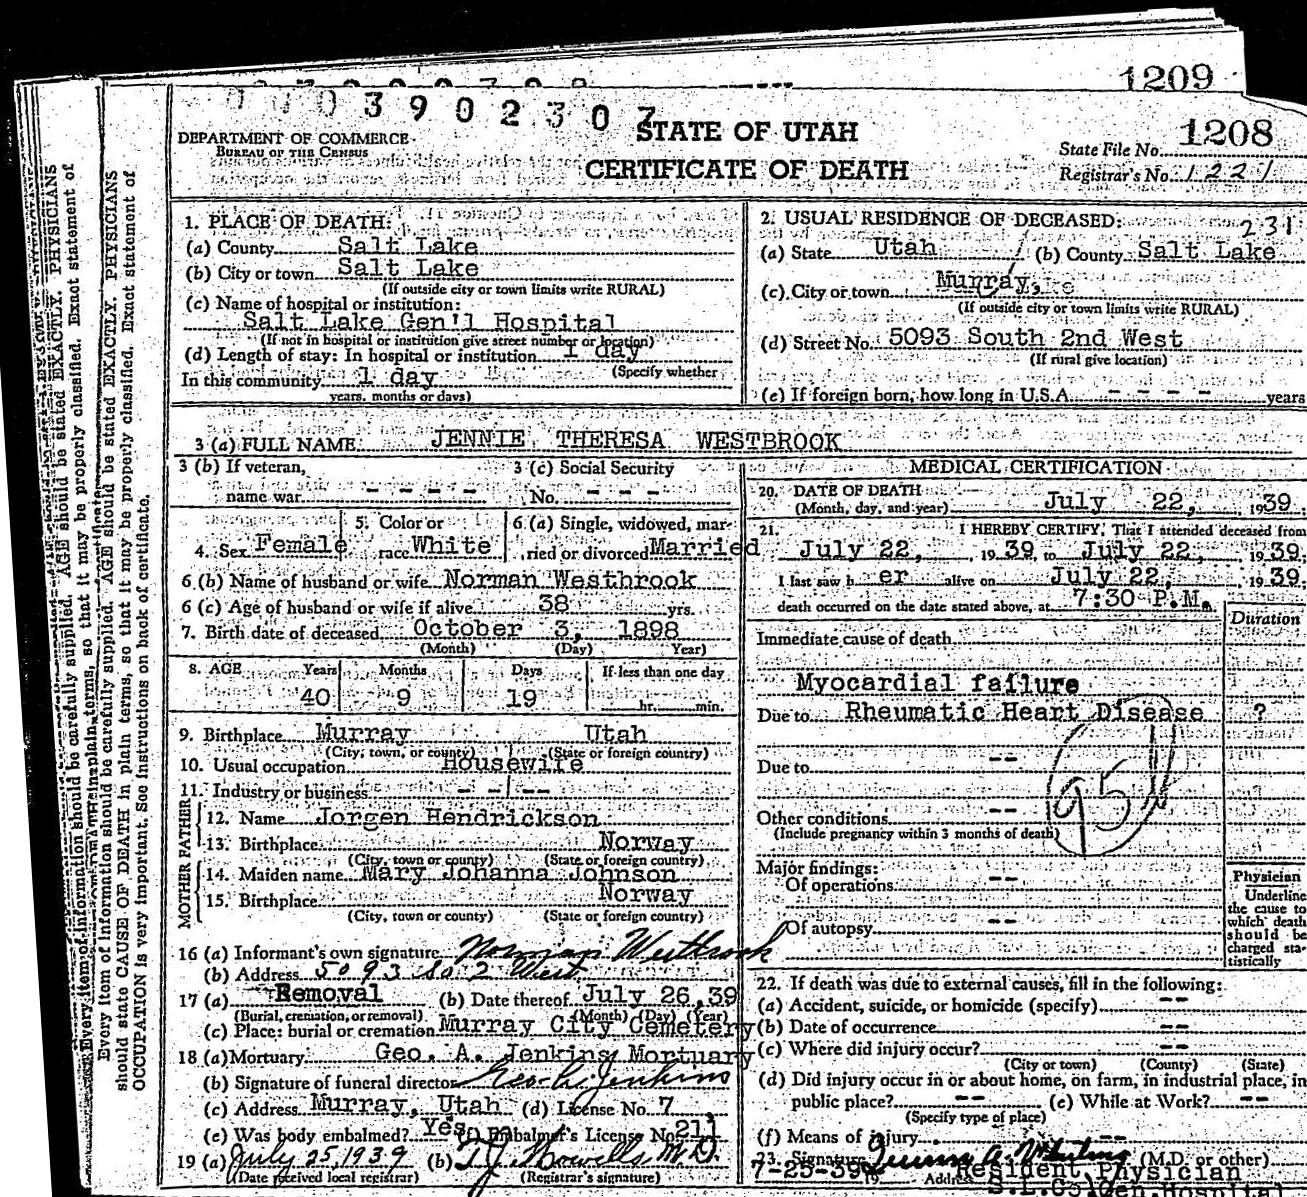 1209
0003902307
STATE OF UTAH
CERTIFICATE OF DEATH
DEPARTMENT OF COMMERCE
BUREAU OF THE CENSUS
State File No. 1208
Registrar's No. 1221
Every item of information should be carefully supplied. AGE should be stated EXACTLY. PHYSICIANS
should state CAUSE OF DEATH in plain terms, so that it may be properly classified. Exact statement of
OCCUPATION is very important. See instructions on back of certificate.
1. PLACE OF DEATH:
(a) County Salt Lake
(b) City or town Salt Lake
(If outside city or town limits write RURAL)
(c) Name of hospital or institution:
Salt Lake Gen'l Hospital
(If not in hospital or institution give street number or location)
(d) Length of stay: In hospital or institution 1 day
(Specify whether
In this community 1 day
years, months or days)
2. USUAL RESIDENCE OF DECEASED:
231
(a) State Utah (b) County Salt Lake
(c) City or town Murray,
(If outside city or town limits write RURAL)
(d) Street No. 5093 South 2nd West
(If rural give location)
(e) If foreign born, how long in U.S.A. - - - - years
3 (a) FULL NAME JENNIE THERESA WESTBROOK
3 (b) If veteran,
name war - - - -
3 (c) Social Security
No. - - -
4. Sex Female
5. Color or
race White
6. (a) Single, widowed, mar-
ried or divorced Married
6 (b) Name of husband or wife Norman Westbrook
6 (c) Age of husband or wife if alive 38 yrs.
7. Birth date of deceased October 3, 1898
(Month) (Day) Year)
8. AGE Years Months Days If less than one day
40 9 19 hr. min.
9. Birthplace Murray Utah
(City, town, or county) (State or foreign country)
10. Usual occupation Housewife
11. Industry or business - - - -
FATHER
12. Name Jorgen Hendrickson
13. Birthplace Norway
(City, town or county) (State or foreign country)
MOTHER
14. Maiden name Mary Johanna Johnson
15. Birthplace Norway
(City, town or county) (State or foreign country)
16 (a) Informant's own signature Norman Westbrook
(b) Address 5093 So 2 West
17 (a) Removal (b) Date thereof July 26,39
(Burial, cremation, or removal) (Month) (Day) (Year)
(c) Place: burial or cremation Murray City Cemetery
18 (a) Mortuary Geo. A. Jenkins Mortuary
(b) Signature of funeral director Geo. A. Jenkins
(c) Address Murray, Utah (d) License No. 7
(e) Was body embalmed? Yes (f) Embalmer's License No. 211
19 (a) July 25, 1939 (b) M.D.
(Date received local registrar) (Registrar's signature)
MEDICAL CERTIFICATION
20. DATE OF DEATH
(Month, day, and year) July 22, 1939.
21. I HEREBY CERTIFY, That I attended deceased from
July 22, 1939 to July 22, 1939
I last saw h er alive on July 22, 1939.
death occurred on the date stated above, at 7:30 P.M.
Duration
Immediate cause of death
Myocardial failure
Due to Rheumatic Heart Disease ?
Due to --
95
Other conditions --
(Include pregnancy within 3 months of death)
Major findings:
Of operations --
Of autopsy --
Physician
Underline
the cause to
which death
should be
charged sta-
tistically
22. If death was due to external causes, fill in the following:
(a) Accident, suicide, or homicide (specify) --
(b) Date of occurrence --
(c) Where did injury occur? --
(City or town) (County) (State)
(d) Did injury occur in or about home, on farm, in industrial place, in
public place? -- (e) While at Work? --
(Specify type of place)
(f) Means of injury --
23. Signature (M.D. or other)
7-25-39 19 Address Resident Physician
S.L.Co. Gen.Hospital